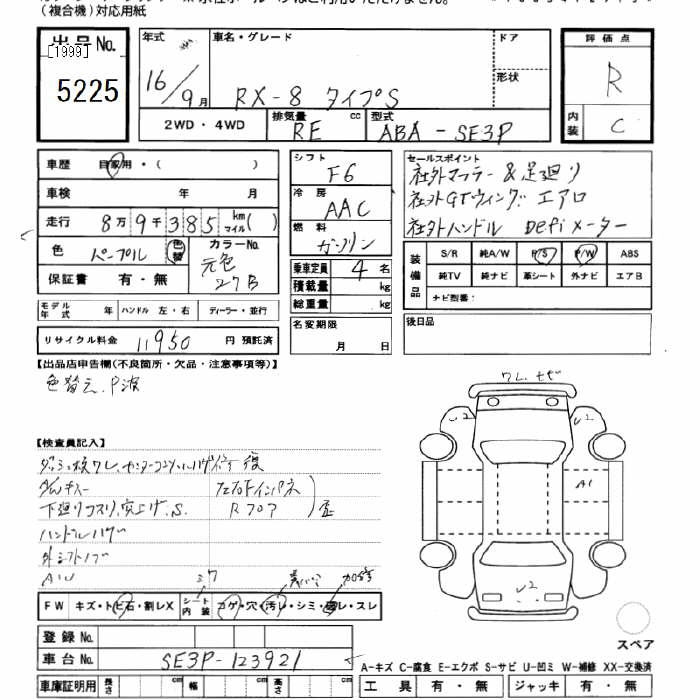 (複合機)対応用紙
出品No. [1999] 5225
年式 16/9月
車名・グレード RX-8 タイプS
ドア
形状
評価点 R
内装 C
2WD・4WD
排気量 cc RE
型式 ABA-SE3P
車歴 自家用・( )
車検 年 月
走行 8万9千385 km マイル( )
色 パープル 色替
カラーNo. 元色 27B
保証書 有・無
モデル年式 年 ハンドル 左・右 ディーラー・並行
リサイクル料金 11950 円 預託済
シフト F6
冷房 AAC
燃料 ガソリン
乗車定員 4名
積載量 kg
総重量 kg
名変期限 月 日
セールスポイント
社外マフラー&足廻り
社外GTウィング エアロ
社外ハンドル Defiメーター
装備品 S/R 純A/W P/S P/W ABS
純TV 純ナビ 革シート 外ナビ エアB
ナビ型番:
後日品
【出品店申告欄(不良箇所・欠品・注意事項等)】
色替え、P波
【検査員記入】
下廻りコスリ、突上げ、S
Rフロア
外シフトノブ
AW
FW キズ・トビ石・割レX シート内装 コゲ・穴・汚レ・シミ・破レ・スレ
登録No.
車台No. SE3P-123921
車庫証明用 長さ cm 幅 cm 高さ cm
A1
スペア
A-キズ C-腐食 E-エクボ S-サビ U-凹ミ W-補修 XX-交換済
工具 有・無 ジャッキ 有・無